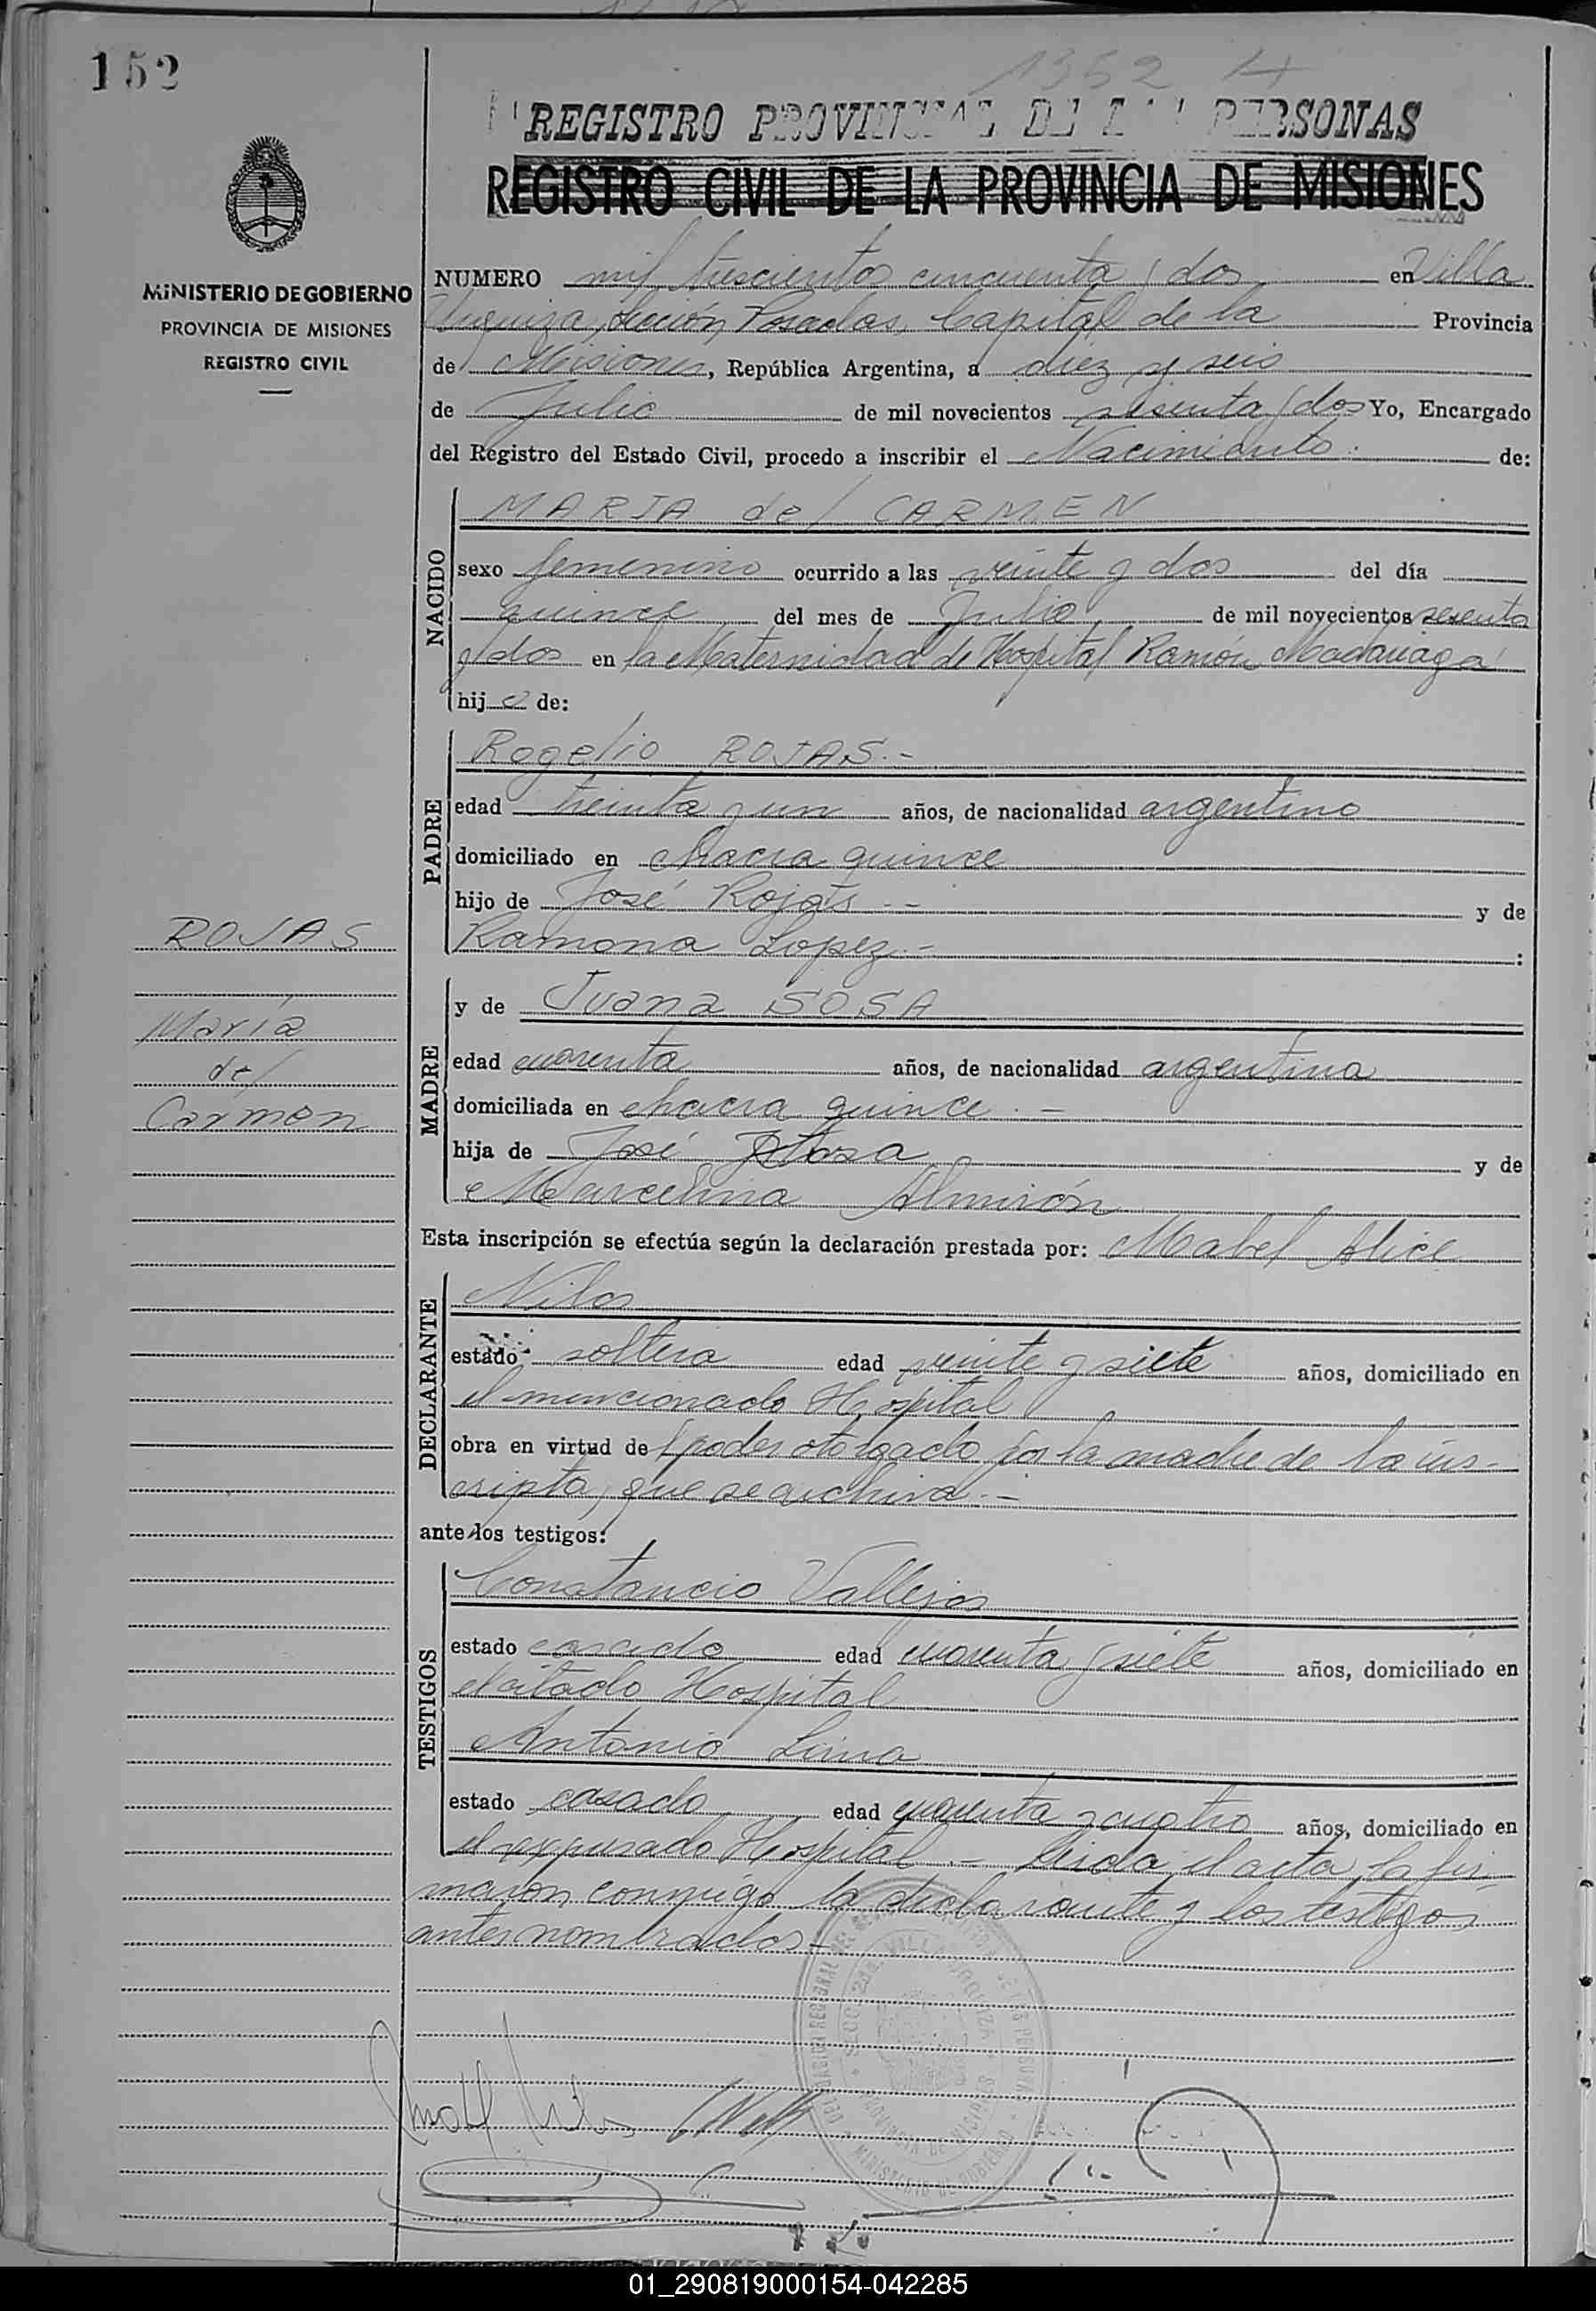 152
1352 H
REGISTRO PROVINCIAL DE LAS PERSONAS
REGISTRO CIVIL DE LA PROVINCIA DE MISIONES
MINISTERIO DE GOBIERNO
PROVINCIA DE MISIONES
REGISTRO CIVIL
NUMERO mil trescientos cincuenta y dos en Villa
Urquiza, Sección Posadas, Capital de la Provincia
de Misiones, República Argentina, a diez y seis
de Julio de mil novecientos sesenta y dos Yo, Encargado
del Registro del Estado Civil, procedo a inscribir el Nacimiento. de:
NACIDO
MARIA del CARMEN
sexo femenino ocurrido a las veinte y dos del día
quince del mes de Julio de mil novecientos sesenta
y dos en la Maternidad de Hospital Ramón Madariaga
hija de:
PADRE
Rogelio ROJAS.-
edad treinta y un años, de nacionalidad argentino
domiciliado en chacra quince
hijo de José Rojas.- y de
Ramona Lopez.- :
ROJAS
María
del
Carmen
MADRE
y de Juana SOSA
edad cuarenta años, de nacionalidad argentina
domiciliada en chacra quince.-
hija de José Sosa y de
Marcelina Almirón
Esta inscripción se efectúa según la declaración prestada por: Mabel Alice
DECLARANTE
Nilos
estado soltera edad veinte y siete años, domiciliado en
el mencionado Hospital
obra en virtud de poder otorgado por la madre de la ins-
cripta, que se archiva.-
ante los testigos:
TESTIGOS
Constancio Vallejos
estado casado edad cuarenta y siete años, domiciliado en
el citado Hospital
Antonio Luna
estado casado edad cuarenta y cuatro años, domiciliado en
el expresado Hospital.- Leida el acta, la fir-
maron conmigo la declarante y los testigos
antes nombrados.-
DELEGACION REGIONAL DEL
SECC. 2da. VILLA URQUIZA
PROVINCIA DE MISIONES
MINISTERIO DE GOBIERNO
01_290819000154-042285